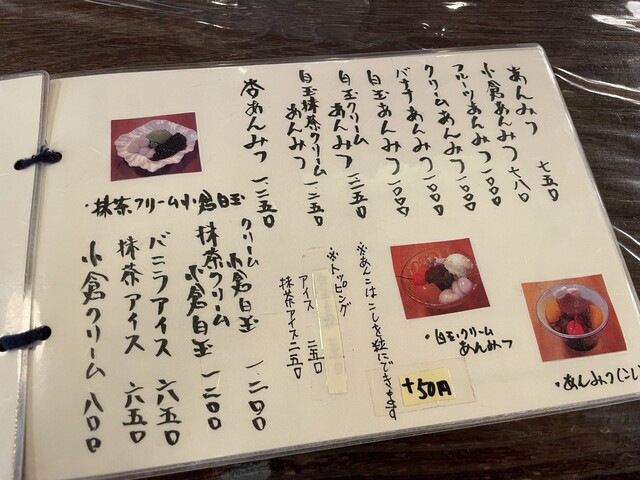 あんみつ 七五〇
小倉あんみつ 七八〇
フルーツあんみつ 一〇〇〇
クリームあんみつ 一〇〇〇
バナナあんみつ 一〇〇〇
白玉あんみつ 一〇〇〇
白玉クリーム
あんみつ 一二五〇
白玉抹茶クリーム
あんみつ 一二五〇
杏あんみつ 一二五〇
※あんこはこしを粒にできます
+50円
※トッピング
アイス 二五〇
抹茶アイス 二五〇
クリーム
小倉白玉 一二〇〇
抹茶クリーム
小倉白玉 一二〇〇
バニラアイス 六五〇
抹茶アイス 六五〇
小倉クリーム 八〇〇
・抹茶クリーム小倉白玉
・白玉クリーム
あんみつ
・あんみつ(こし